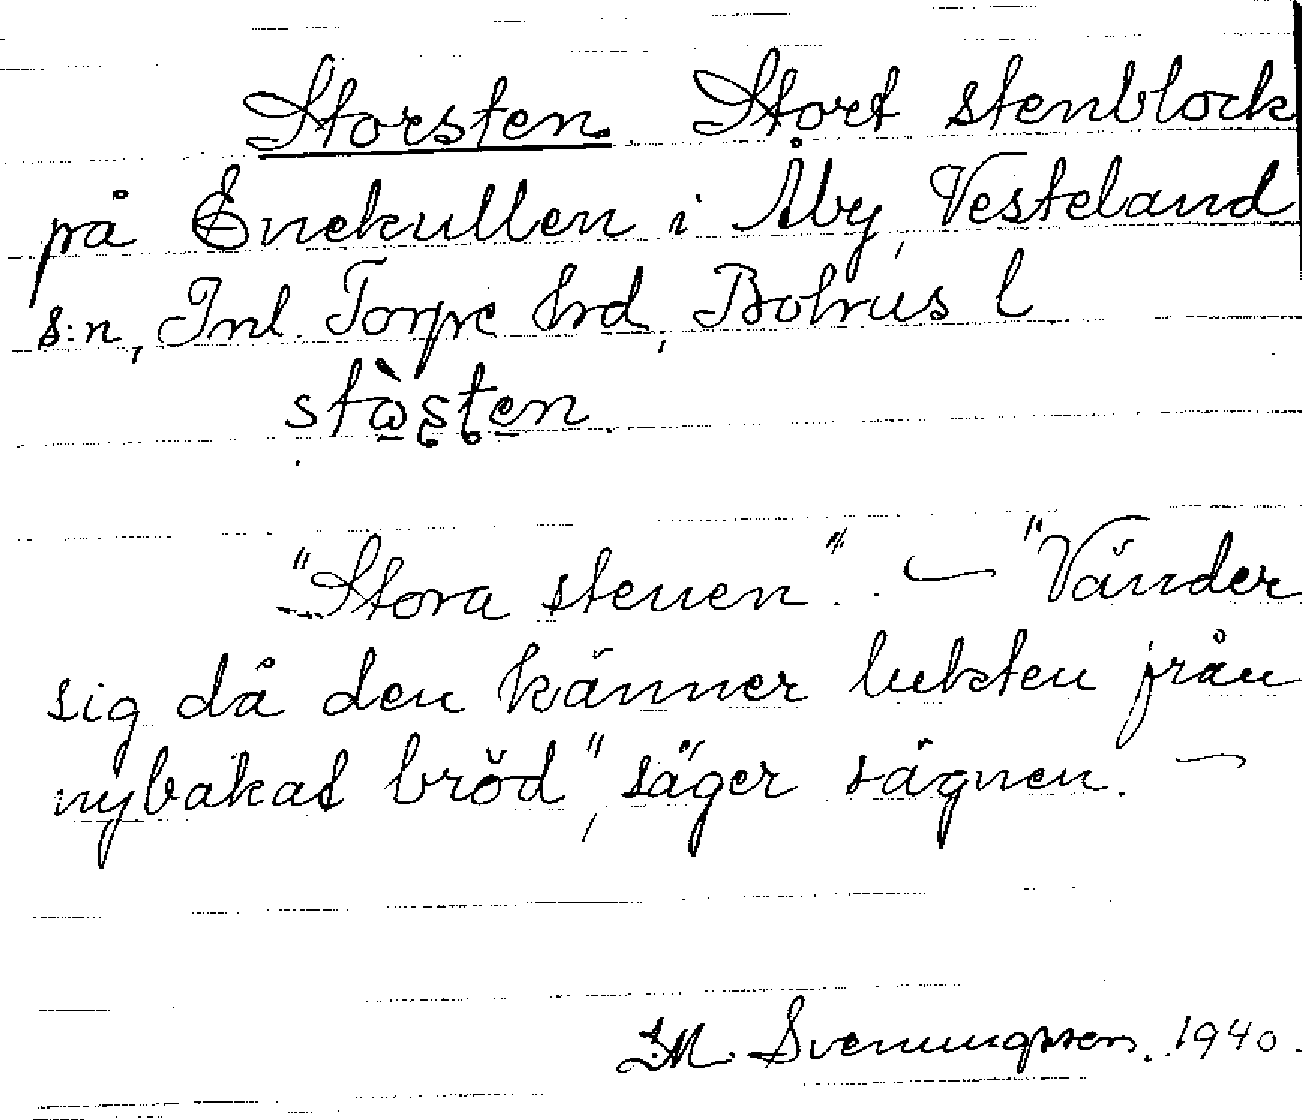 Storsten. Stort stenblock
på Enekullen i Åby, Vesteland
s:n, Inl. Torpe hrd, Bohus l
stȧ̀s̨ten
"Stora stenen". — "Vänder
sig då den känner lukten från
nybakat bröd", säger sägnen. —
J.M. Svenungsson. 1940.